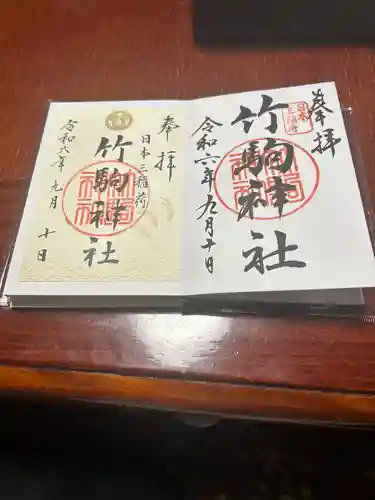 奉拝
日本三稲荷
竹駒神社
令和六年九月十日
奉拝
日本三稲荷
竹駒神社
令和六年九月十日